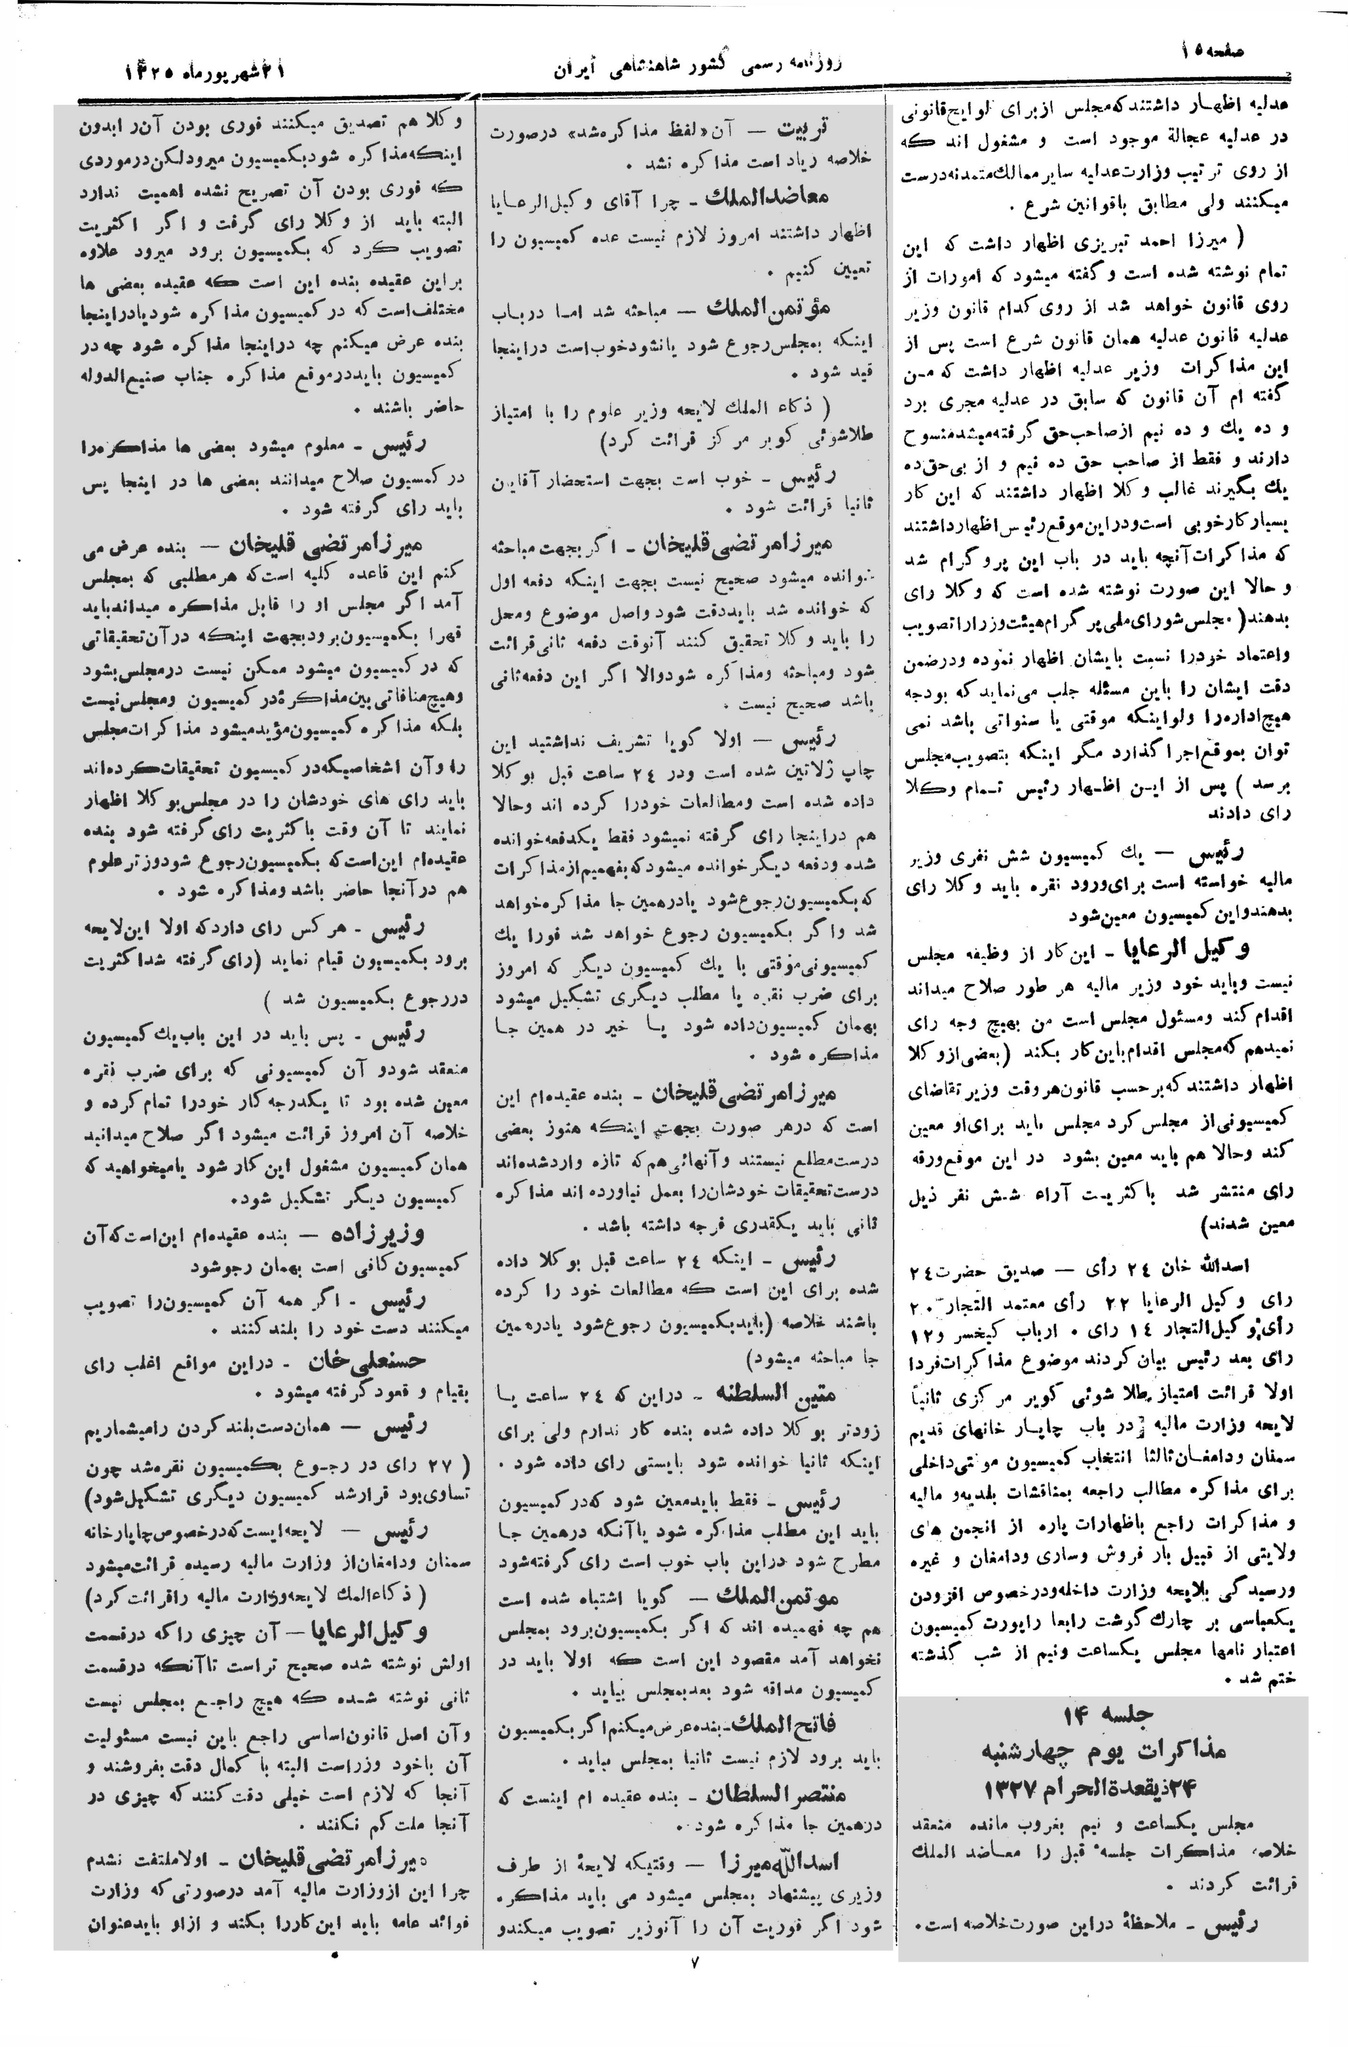 صفحه ۱۵
روزنامه رسمی کشور شاهنشاهی ایران
۲۱ شهریور ماه ۱۳۲۵
عدلیه اظهار داشتند که مجلس از برای لوایح قانونی
در عدلیه عجالة موجود است و مشغول اند که
از روی ترتیب وزارت عدلیه سایر ممالك متمدنه درست
میکنند ولی مطابق باقوانین شرع .
( میرزا احمد تبریزی اظهار داشت که این
تمام نوشته شده است و گفته میشود که امورات از
روی قانون خواهد شد از روی کدام قانون وزیر
عدلیه قانون عدلیه همان قانون شرع است پس از
این مذاکرات وزیر عدلیه اظهار داشت که من
گفته ام آن قانون که سابق در عدلیه مجری برد
و ده یك و ده نیم از صاحب حق گرفته میشد منسوح
دارند و فقط از صاحب حق ده نیم و از بی حق ده
یك بگیرند غالب وکلا اظهار داشتند که این کار
بسیار کار خوبی است و در این موقع رئیس اظهار داشتند
که مذاکرات آنچه باید در باب این پروگرام شد
و حالا این صورت نوشته شده است که وکلا رای
بدهند ( مجلس شورای ملی پرگرام هیئت وزرا را تصویب
و اعتماد خود را نسبت بایشان اظهار نموده و در ضمن
دقت ایشان را باین مسئله جلب می نماید که بودجه
هیچ اداره را ولو اینکه موقتی یا سنواتی باشد نمی
توان بموقع اجرا گذارد مگر اینکه بتصویب مجلس
برسد ) پس از این اظهار رئیس تمام وکلا
رای دادند
رئیس — یك کمیسیون شش نفری وزیر
مالیه خواسته است برای ورود نقره باید وکلا رای
بدهند و این کمیسیون معین شود
وکیل الرعایا - این کار از وظیفه مجلس
نیست و باید خود وزیر مالیه هر طور صلاح میداند
اقدام کند و مسئول مجلس است من بهیچ وجه رای
نمیدهم که مجلس اقدام باین کار بکند ( بعضی از وکلا
اظهار داشتند که بر حسب قانون هر وقت وزیر تقاضای
کمیسیونی از مجلس کرد مجلس باید برای او معین
کند و حالا هم باید معین بشود در این موقع ورقه
رای منتشر شد باکثریت آراء شش نفر ذیل
معین شدند)
اسدالله خان ۲۴ رأی — صدیق حضرت ۲۴
رای وکیل الرعایا ۲۲ رأی معتمد التجار ۲۰
رأی وکیل التجار ۱۴ رای . ارباب کیخسرو ۱۲
رای بعد رئیس بیان کردند موضوع مذاکرات فردا
اولا قرائت امتیاز طلا شوئی کویر مرکزی ثانیا
لایحه وزارت مالیه در باب چاپار خانهای قدیم
سمنان و دامغان ثالثا انتخاب کمیسیون موقتی داخلی
برای مذاکره مطالب راجعه بمناقشات بلدیه و مالیه
و مذاکرات راجع باظهارات پاره از انجمن های
ولایتی از قبیل بار فروش و ساری و دامغان و غیره
ورسیدگی بلایحه وزارت داخله و در خصوص افزودن
یکعباسی بر چارك گوشت رابعا راپورت کمیسیون
اعتبار نامها مجلس یکساعت و نیم از شب گذشته
ختم شد .
جلسه ۱۴
مذاکرات یوم چهارشنبه
۲۴ ذیقعدة الحرام ۱۳۲۷
مجلس یکساعت و نیم بغروب مانده منعقد
خلاصه مذاکرات جلسهٔ قبل را معاضد الملك
قرائت کردند .
رئیس - ملاحظهٔ در این صورت خلاصه است .
تربیت — آن «لفظ مذاکره شد» در صورت
خلاصه زیاد است مذاکره نشد .
معاضد الملك - چرا آقای وکیل الرعایا
اظهار داشتند امروز لازم نیست عده کمیسیون را
تعیین کنیم .
مؤتمن الملك — مباحثه شد اما در باب
اینکه بمجلس رجوع شود یا نشود خوب است در اینجا
قید شود .
( ذکاء الملك لایحه وزیر علوم را با امتیاز
طلاشوئی کویر مرکز قرائت کرد)
رئیس - خوب است بجهت استحضار آقایان
ثانیا قرائت شود .
میرزا مرتضی قلیخان - اگر بجهت مباحثه
خوانده میشود صحیح نیست بجهت اینکه دفعه اول
که خوانده شد باید دقت شود و اصل موضوع و محل
را باید وکلا تحقیق کنند آنوقت دفعه ثانی قرائت
شود و مباحثه و مذاکره شود والا اگر این دفعه ثانی
باشد صحیح نیست .
رئیس — اولا گویا تشریف نداشتید این
چاپ ژلاتین شده است و در ۲۴ ساعت قبل بوکلا
داده شده است و مطالعات خود را کرده اند و حالا
هم در اینجا رای گرفته نمیشود فقط یکدفعه خوانده
شده و دفعه دیگر خوانده میشود که بفهمیم از مذاکرات
که بکمیسیون رجوع شود یا در همین جا مذاکره خواهد
شد و اگر بکمیسیون رجوع خواهد شد فورا یك
کمیسیونی موقتی با یك کمیسیون دیگر که امروز
برای ضرب نقره یا مطلب دیگری تشکیل میشود
بهمان کمیسیون داده شود یا خیر در همین جا
مذاکره شود .
میرزا مرتضی قلیخان - بنده عقیده ام این
است که در هر صورت بجهت اینکه هنوز بعضی
درست مطلع نیستند و آنهائی هم که تازه وارد شده اند
درست تحقیقات خودشان را بعمل نیاورده اند مذاکره
ثانی باید یکقدری فرجه داشته باشد .
رئیس - اینکه ۲۴ ساعت قبل بوکلا داده
شده برای این است که مطالعات خود را کرده
باشند خلاصه (باید بکمیسیون رجوع شود یا در همین
جا مباحثه میشود)
متین السلطنه - در این که ۲۴ ساعت یا
زودتر بوکلا داده شده بنده کار ندارم ولی برای
اینکه ثانیا خوانده شود بایستی رای داده شود .
رئیس - فقط باید معین شود که در کمیسیون
باید این مطلب مذاکره شود یا آنکه در همین جا
مطرح شود در این باب خوب است رای گرفته شود
موتمن الملك — گویا اشتباه شده است
هم چه فهمیده اند که اگر بکمیسیون برود بمجلس
نخواهد آمد مقصود این است که اولا باید در
کمیسیون مداقه شود بعد بمجلس بیاید .
فاتح الملك - بنده عرض میکنم اگر بکمیسیون
باید برود لازم نیست ثانیا بمجلس بیاید .
منتصر السلطان - بنده عقیده ام اینست که
در همین جا مذاکره شود .
اسدالله میرزا — وقتیکه لایحهٔ از طرف
وزیری پیشنهاد بمجلس میشود می باید مذاکره
شود اگر فوریت آن را آنوزیر تصویب میکند و
وکلا هم تصدیق میکنند فوری بودن آن را بدون
اینکه مذاکره شود بکمیسیون میرود لکن در موردی
که فوری بودن آن تصریح نشده اهمیت ندارد
البته باید از وکلا رای گرفت و اگر اکثریت
تصویب کرد که بکمیسیون برود میرود علاوه
بر این عقیده بنده این است که عقیده بعضی ها
مختلف است که در کمیسیون مذاکره شود یا در اینجا
بنده عرض میکنم چه در اینجا مذاکره شود چه در
کمیسیون باید در موقع مذاکره جناب صنیع الدوله
حاضر باشند .
رئیس - معلوم میشود بعضی ها مذاکره را
در کمسیون صلاح میدانند بعضی ها در اینجا پس
باید رای گرفته شود .
میرزا مرتضی قلیخان — بنده عرض می
کنم این قاعده کلیه است که هر مطلبی که بمجلس
آمد اگر مجلس او را قابل مذاکره میداند باید
قهرا بکمیسیون برود بجهت اینکه در آن تحقیقاتی
که در کمیسیون میشود ممکن نیست در مجلس بشود
و هیچ منافاتی بین مذاکره در کمیسیون و مجلس نیست
بلکه مذاکره کمیسیون مؤید میشود مذاکرات مجلس
را و آن اشخاصیکه در کمیسیون تحقیقات کرده اند
باید رای های خودشان را در مجلس بوکلا اظهار
نمایند تا آن وقت باکثریت رای گرفته شود بنده
عقیده ام این است که بکمیسیون رجوع شود وزیر علوم
هم در آنجا حاضر باشد و مذاکره شود .
رئیس - هر کس رای دارد که اولا این لایحه
برود بکمیسیون قیام نماید (رای گرفته شد اکثریت
در رجوع بکمیسیون شد )
رئیس - پس باید در این باب یك کمیسیون
منعقد شود و آن کمیسیونی که برای ضرب نقره
معین شده بود تا یکدرجه کار خود را تمام کرده و
خلاصه آن امروز قرائت میشود اگر صلاح میدانید
همان کمیسیون مشغول این کار شود یا میخواهید که
کمیسیون دیگر تشکیل شود.
وزیرزاده — بنده عقیده ام این است که آن
کمیسیون کافی است بهمان رجوشود
رئیس - اگر همه آن کمیسیون را تصویب
میکنند دست خود را بلند کنند .
حسنعلی خان - در این مواقع اغلب رای
بقیام و قعود گرفته میشود .
رئیس — همان دست بلند کردن را میشماریم
( ۲۷ رای در رجوع بکمیسیون نقره شد چون
تساوی بود قرار شد کمیسیون دیگری تشکیل شود)
رئیس — لایحه ایست که در خصوص چاپار خانه
سمنان و دامغان از وزارت مالیه رسیده قرائت میشود
( ذکاء الملك لایحه وزارت مالیه را قرائت کرد)
وکیل الرعایا — آن چیزی را که در قسمت
اولش نوشته شده صحیح تر است تا آنکه در قسمت
ثانی نوشته شده که هیچ راجع بمجلس نیست
و آن اصل قانون اساسی راجع باین نیست مسئولیت
آن با خود وزراست البته با کمال دقت بفروشند و
آنجا که لازم است خیلی دقت کنند که چیزی در
آنجا ملت کم نکنند .
میرزا مرتضی قلیخان - اولا ملتفت نشدم
چرا این از وزارت مالیه آمد در صورتی که وزارت
فوائد عامه باید این کار را بکند و از او باید عنوان
۷